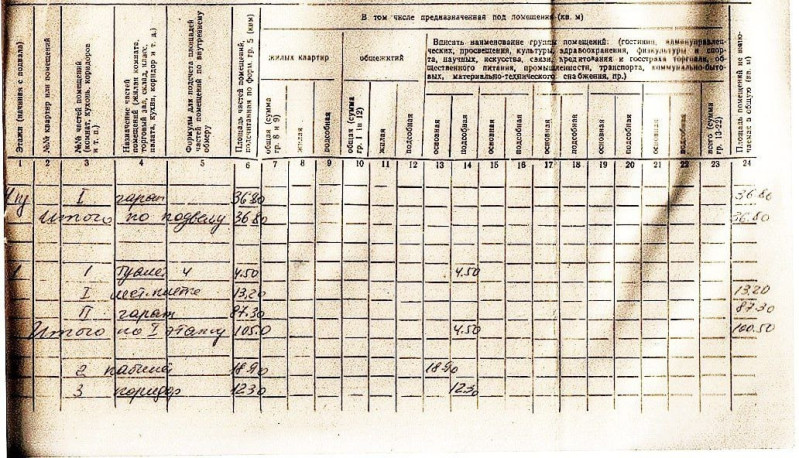 В том числе предназначенная под помещения (кв. м)
Этажи (начиная с подвала)
№№ квартир или помещений
№№ частей помещений (комнат, кухонь, коридоров и т. п.)
Назначение частей помещений (жилая комната, торговый зал, склад, класс, палата, кухня, коридор и т. п.)
Формулы для подсчета площадей частей помещений по внутреннему обмеру
Площадь частей помещений, подсчитанная по форм. гр. 5 (кв.м)
жилых квартир
общежитий
Вписать наименование группы помещений: (гостиниц, административных,
просвещения, культуры, здравоохранения, физкультуры и спорта,
научных, искусства, связи, кредитования и госстраха торговли, общественного
питания, промышленности, транспорта, коммунально-бытовых,
материально-технического снабжения, пр.)
общая (сумма гр. 8 и 9)
жилая
подсобная
общая (сумма гр. 11 и 12)
жилая
подсобная
основная
подсобная
основная
подсобная
основная
подсобная
основная
подсобная
основная
подсобная
всего (сумма гр. 13-22)
1 2 3 4 5 6 7 8 9 10 11 12 13 14 15 16 17 18 19 20 21 22 23 24
I гараж 36.80 36.80
Итого по подвалу 36.80 36.80
1 1 туалет 4.50 4.50
I лест. клетка 13.20 13.20
II гараж 87.30 87.30
Итого по I этажу 105.0 4.50 100.50
2 кабинет 18.90 18.90
3 коридор 12.30 12.30